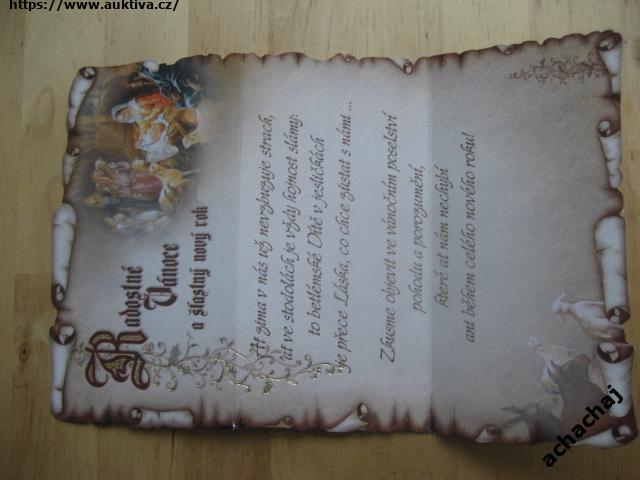 https://www.auktiva.cz/
Radostné
Vánoce
a šťastný nový rok
Ať zima v nás už nevzbuzuje strach,
ať ve stodolách je vždy hojnost slámy:
to betlémské Dítě v jesličkách
je přece Láska, co chce zůstat s námi ...
Zkusme objevit ve vánočním poselství
pohodu a porozumění,
které ať nám nechybí
ani během celého nového roku!
achachaj